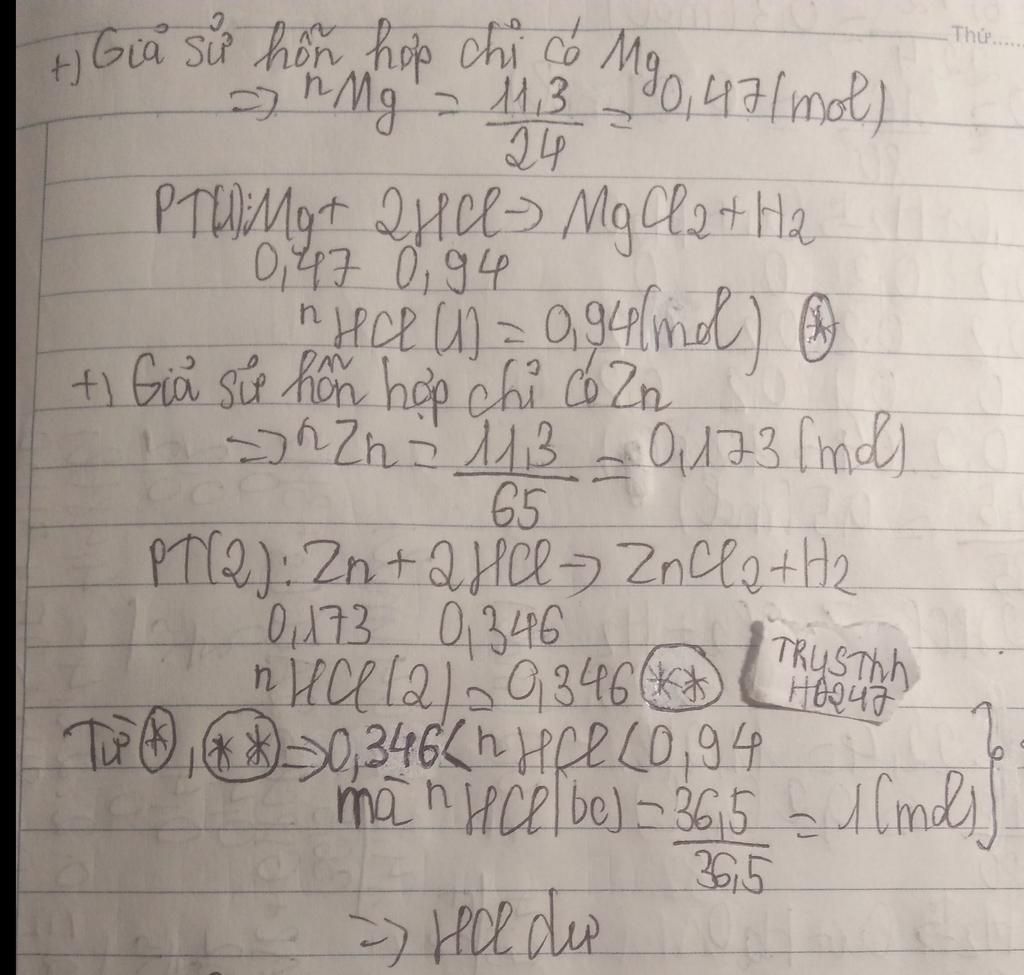 Thứ......
+) Giả sử hỗn hợp chỉ có Mg
=> nMg = 11,3/24 = 0,47(mol)
PT(1):Mg+ 2HCl-> MgCl2+H2
0,47 0,94
nHCl(1) = 0,94(mol) *
+) Giả sử hỗn hợp chỉ có Zn
=> nZn = 11,3/65 = 0,173(mol)
PT(2): Zn+2HCl-> ZnCl2+H2
0,173 0,346
nHCl(2) = 0,346 **
TRYSThh
HĐ247
Từ *, ** => 0,346<nHCl<0,94
mà nHCl(bc) = 36,5/36,5 = 1(mol)
=> HCl dư